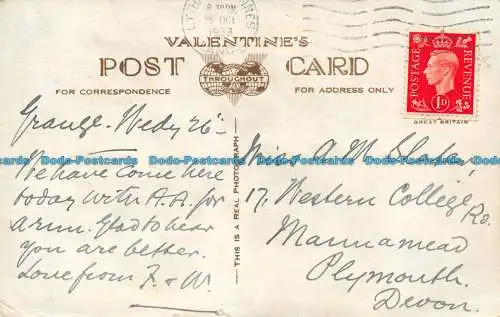 OCT
1938
VALENTINE'S
POST CARD
THROUGHOUT
FOR CORRESPONDENCE
FOR ADDRESS ONLY
POSTAGE
REVENUE
1D
GREAT BRITAIN
THIS IS A REAL PHOTOGRAPH
Grange. Wedy 26th
We have come here
today with A.A. for
a run. Glad to hear
you are better.
Love from F. & W.
Miss A. M.
17, Western College
Rd.
Mannamead
Plymouth.
Devon.
Dodo-Postcards Dodo-Postcards Dodo-Postcards Dodo-Postcards